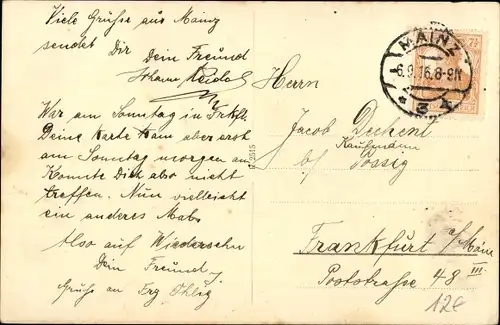 Viele Grüsse aus Mainz
sendet Dir Dein Freund
War am Sonntag in Frkft.
Deine Karte kam aber erst
am Sonntag morgen an
Konnte Dich also nicht
treffen. Nun vielleicht
ein anderes Mal.
Also auf Wiedersehn
Dein Freund
Grüsse an
MAINZ
6.9.16.8-9N
* 3
7½
2515
Herrn
Jacob
Kaufmann
b/
Frankfurt a/Main
Poststrasse 48 III.
12€